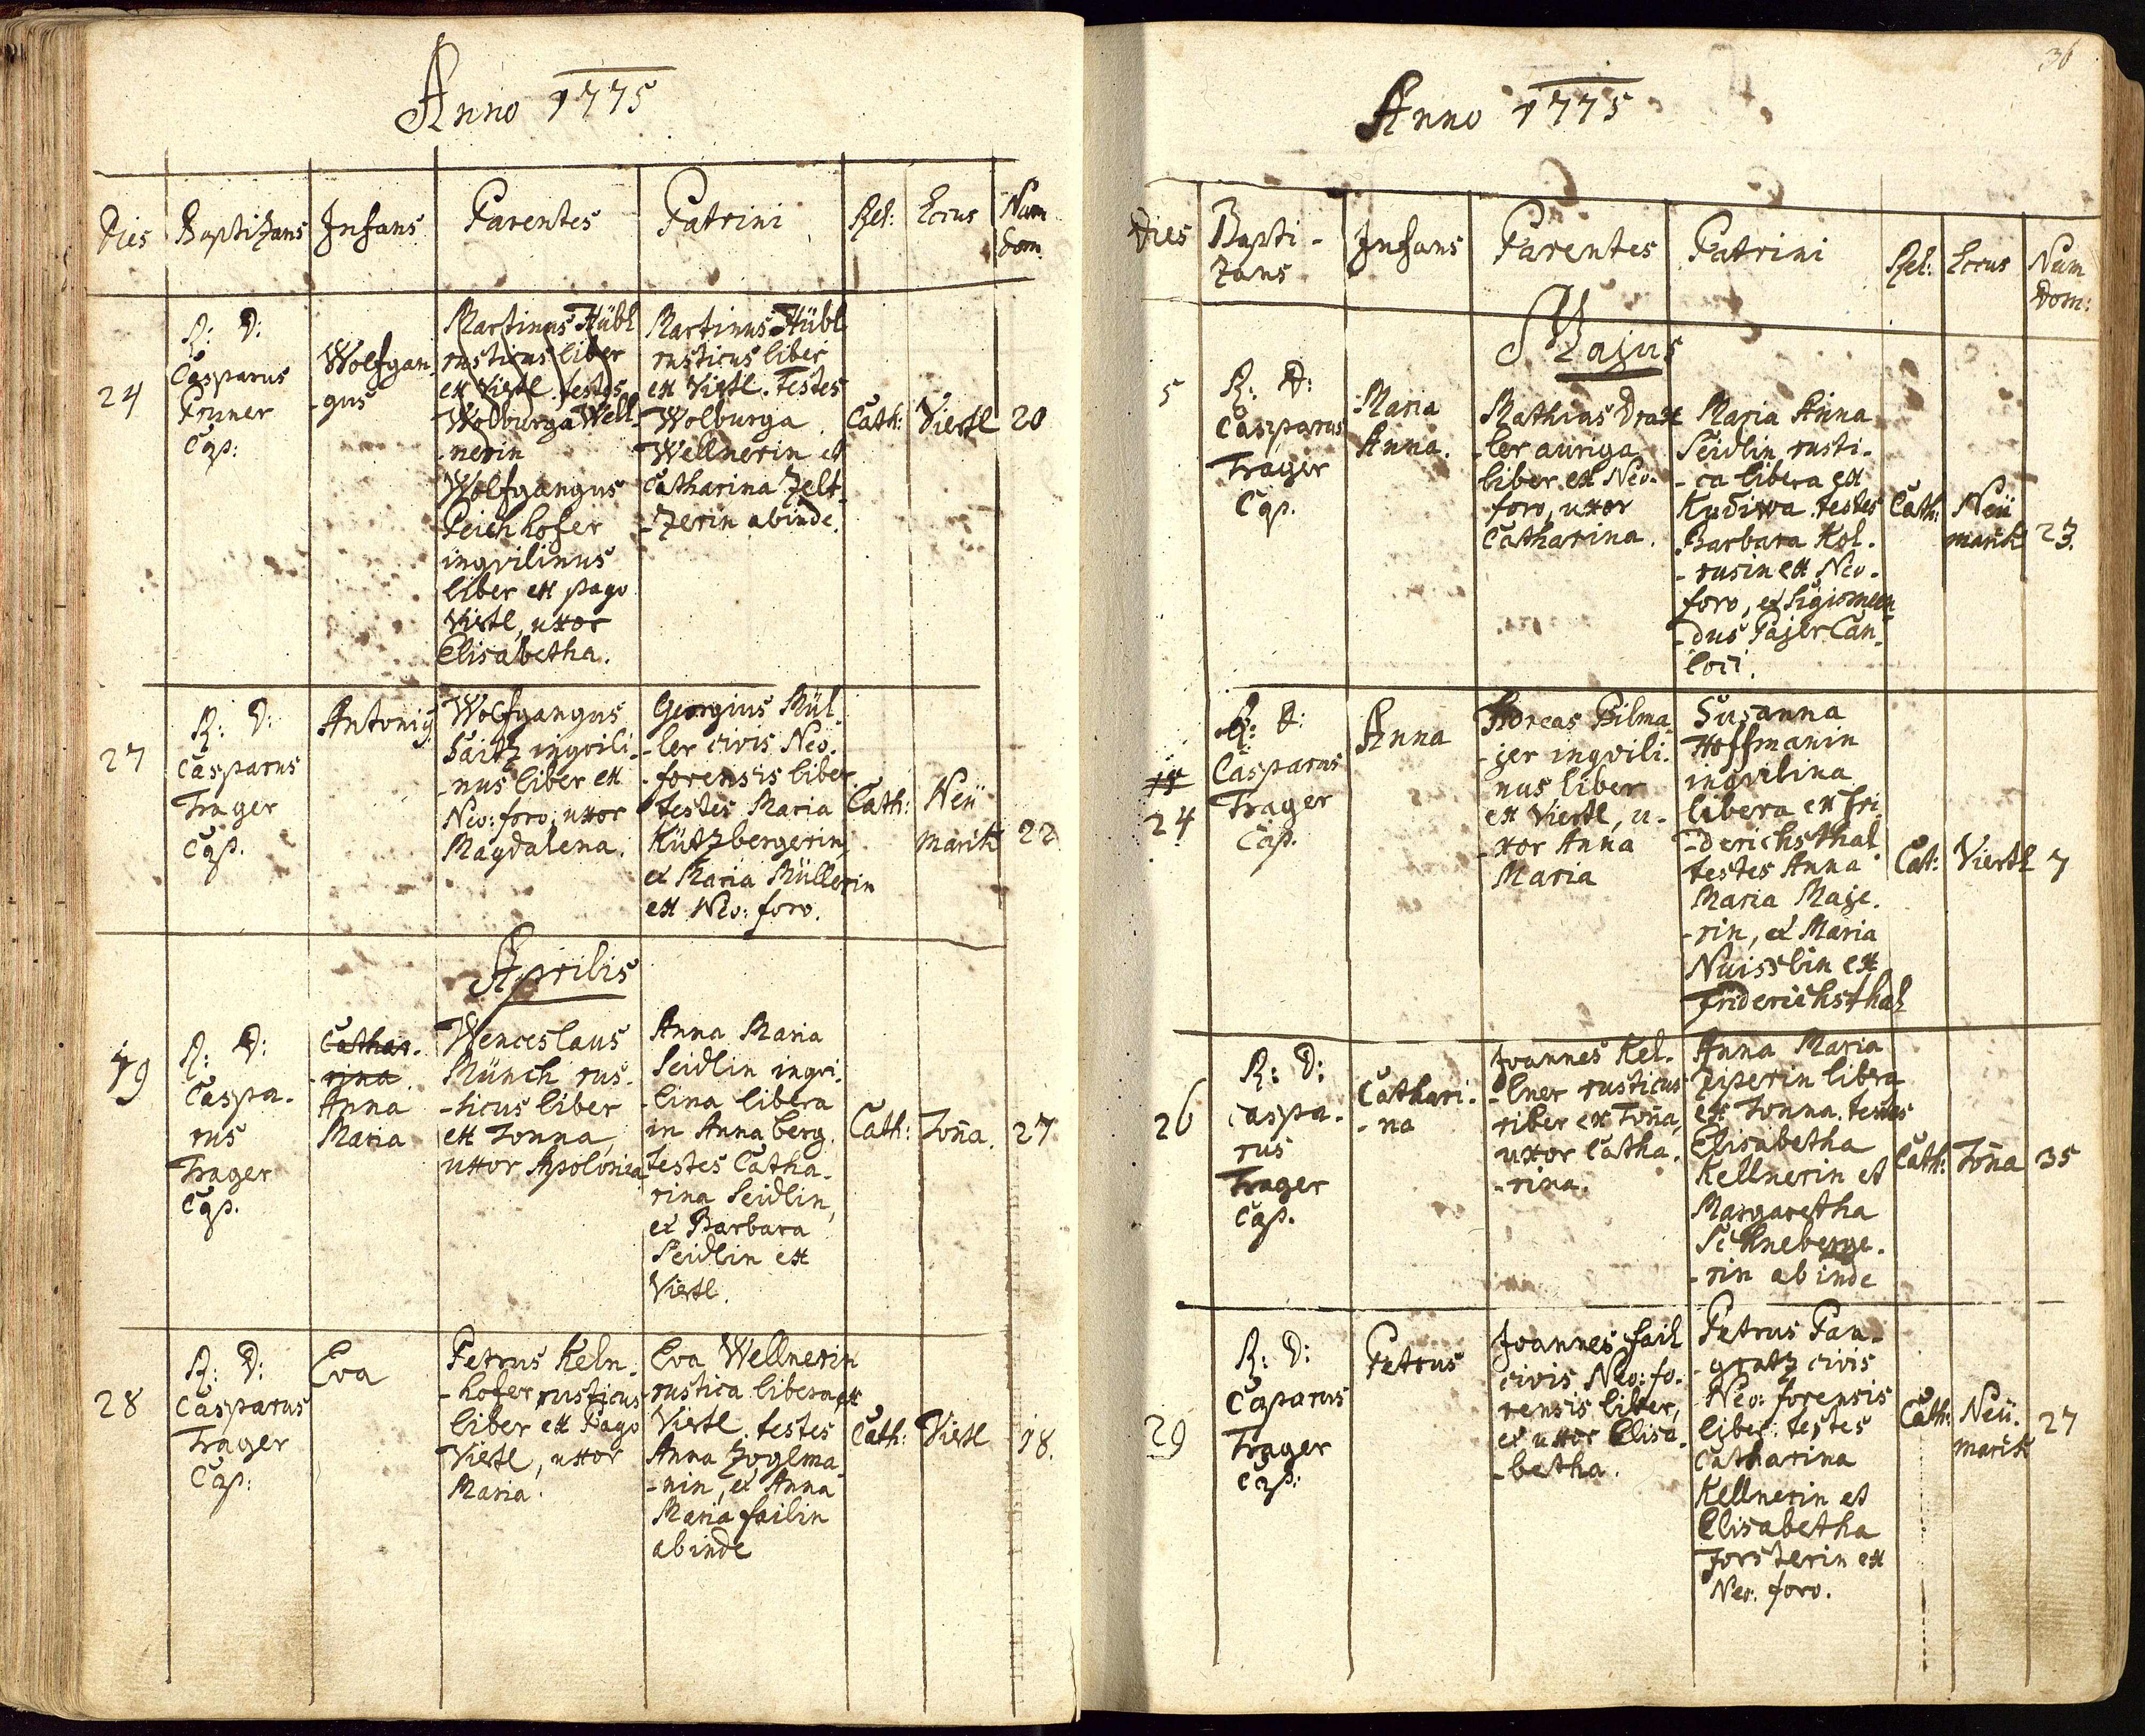 Anno 1775
Dies
Baptizans
Infans
Parentes
Patrini
Rel:
Locus
Num
dom.
24
R: D:
Casparus
Pruner
Cap:
Wolfgan
-gus
Martinus Hübl
rusticus liber
ex Viertl. testes
Wolburga Well-
-nerin
Wolfgangus
Peichhofer
inqvilinus
liber ex pago
Viertl, uxor
Elisabetha.
Martinus Hübl
rusticus liber
ex Viertl. Testes
Wolburga
Wellnerin et
Catharina Zelt-
-zerin abinde.
Cath:
Viertl
20
27
R: D:
Casparus
Trager
Cap.
Antonig
Wolfgangus
Saitz inqvili-
-nus liber ex
Neo: foro, uxor
Magdalena.
Georgius Mül-
-ler civis Neo-
-forensis liber
testes Maria
Kützbergerin,
et Maria Müllerin
ex Neo: foro.
Cath:
Neü
markt
22
Aprilis
19
R: D:
Caspa-
rus
Trager
Cap.
Cathar-
-rina.
Anna
Maria
Wenceslaus
Münch rus-
-ticus liber
ex Tonna,
uxor Apolonia
Anna Maria
Seidlin inqvi-
-lina libera
in Annaberg.
Testes Catha-
rina Seidlin,
et Barbara
Seidlin ex
Viertl.
Cath:
Toña.
27
28
R: D:
Casparus
Trager
Cap:
Eva
Petrus Keln-
-hofer rusticus
liber ex Pago
Viertl, uxor
Maria.
Eva Wellnerin
rustica libera ex
Viertl. testes
Anna Zoglma-
-nin, et Anna
Maria failin
abinde
Cath:
Viertl
18.
36
Anno 1775
Dies
Bapti-
zans
Infans
Parentes
Patrini
Rel:
Locus
Num
Dom:
Majus
5
R: D:
Casparus
Trager
Cap.
Maria
Anna.
Mathias Drax
-ler auriga
liber ex Neo-
foro, uxor
Catharina.
Maria Anna
Seidlin rusti-
-ca libera ex
Kudiwa. testes
Barbara Kol-
-rusin ex Neo-
foro, et Sigismun
-dus Pajer Can-
loci.
Cath:
Neü
markt
23.
24
R: D:
Casparus
Trager
Cap.
Anna
Andreas Bilma
-jer inqvili-
nus liber
ex Viertl, u-
-xor Anna
Maria
Susanna
Hoffmanin
inqvilina
libera ex Fri-
-derichsthal
testes Anna
Maria Maje-
-rin, et Maria
Nuisslin ex
Friderichsthal
Cat:
Viertl
7
26
R: D:
Caspa-
rus
Trager
Cap.
Cathari-
-na
Joannes Kel-
-lner rusticus
riber ex Toña,
uxor Catha-
-rina.
Anna Maria
Ziperin libra
ex Tonna. testes
Elisabetha
Kellnerin et
Margaretha
Schneberge-
-rin abinde
Cath:
Toña
35
29
R: D:
Caparus
Trager
Cap:
Petrus
Joannes fail
civis Neo: fo-
rensis liber,
et uxor Elisa-
-betha.
Petrus Pan-
-gratz civis
Neo: forensis
liber. testes
Catharina
Kellnerin et
Elisabetha
Forsterin ex
Neo: foro.
Cath:
Neü-
markt
27